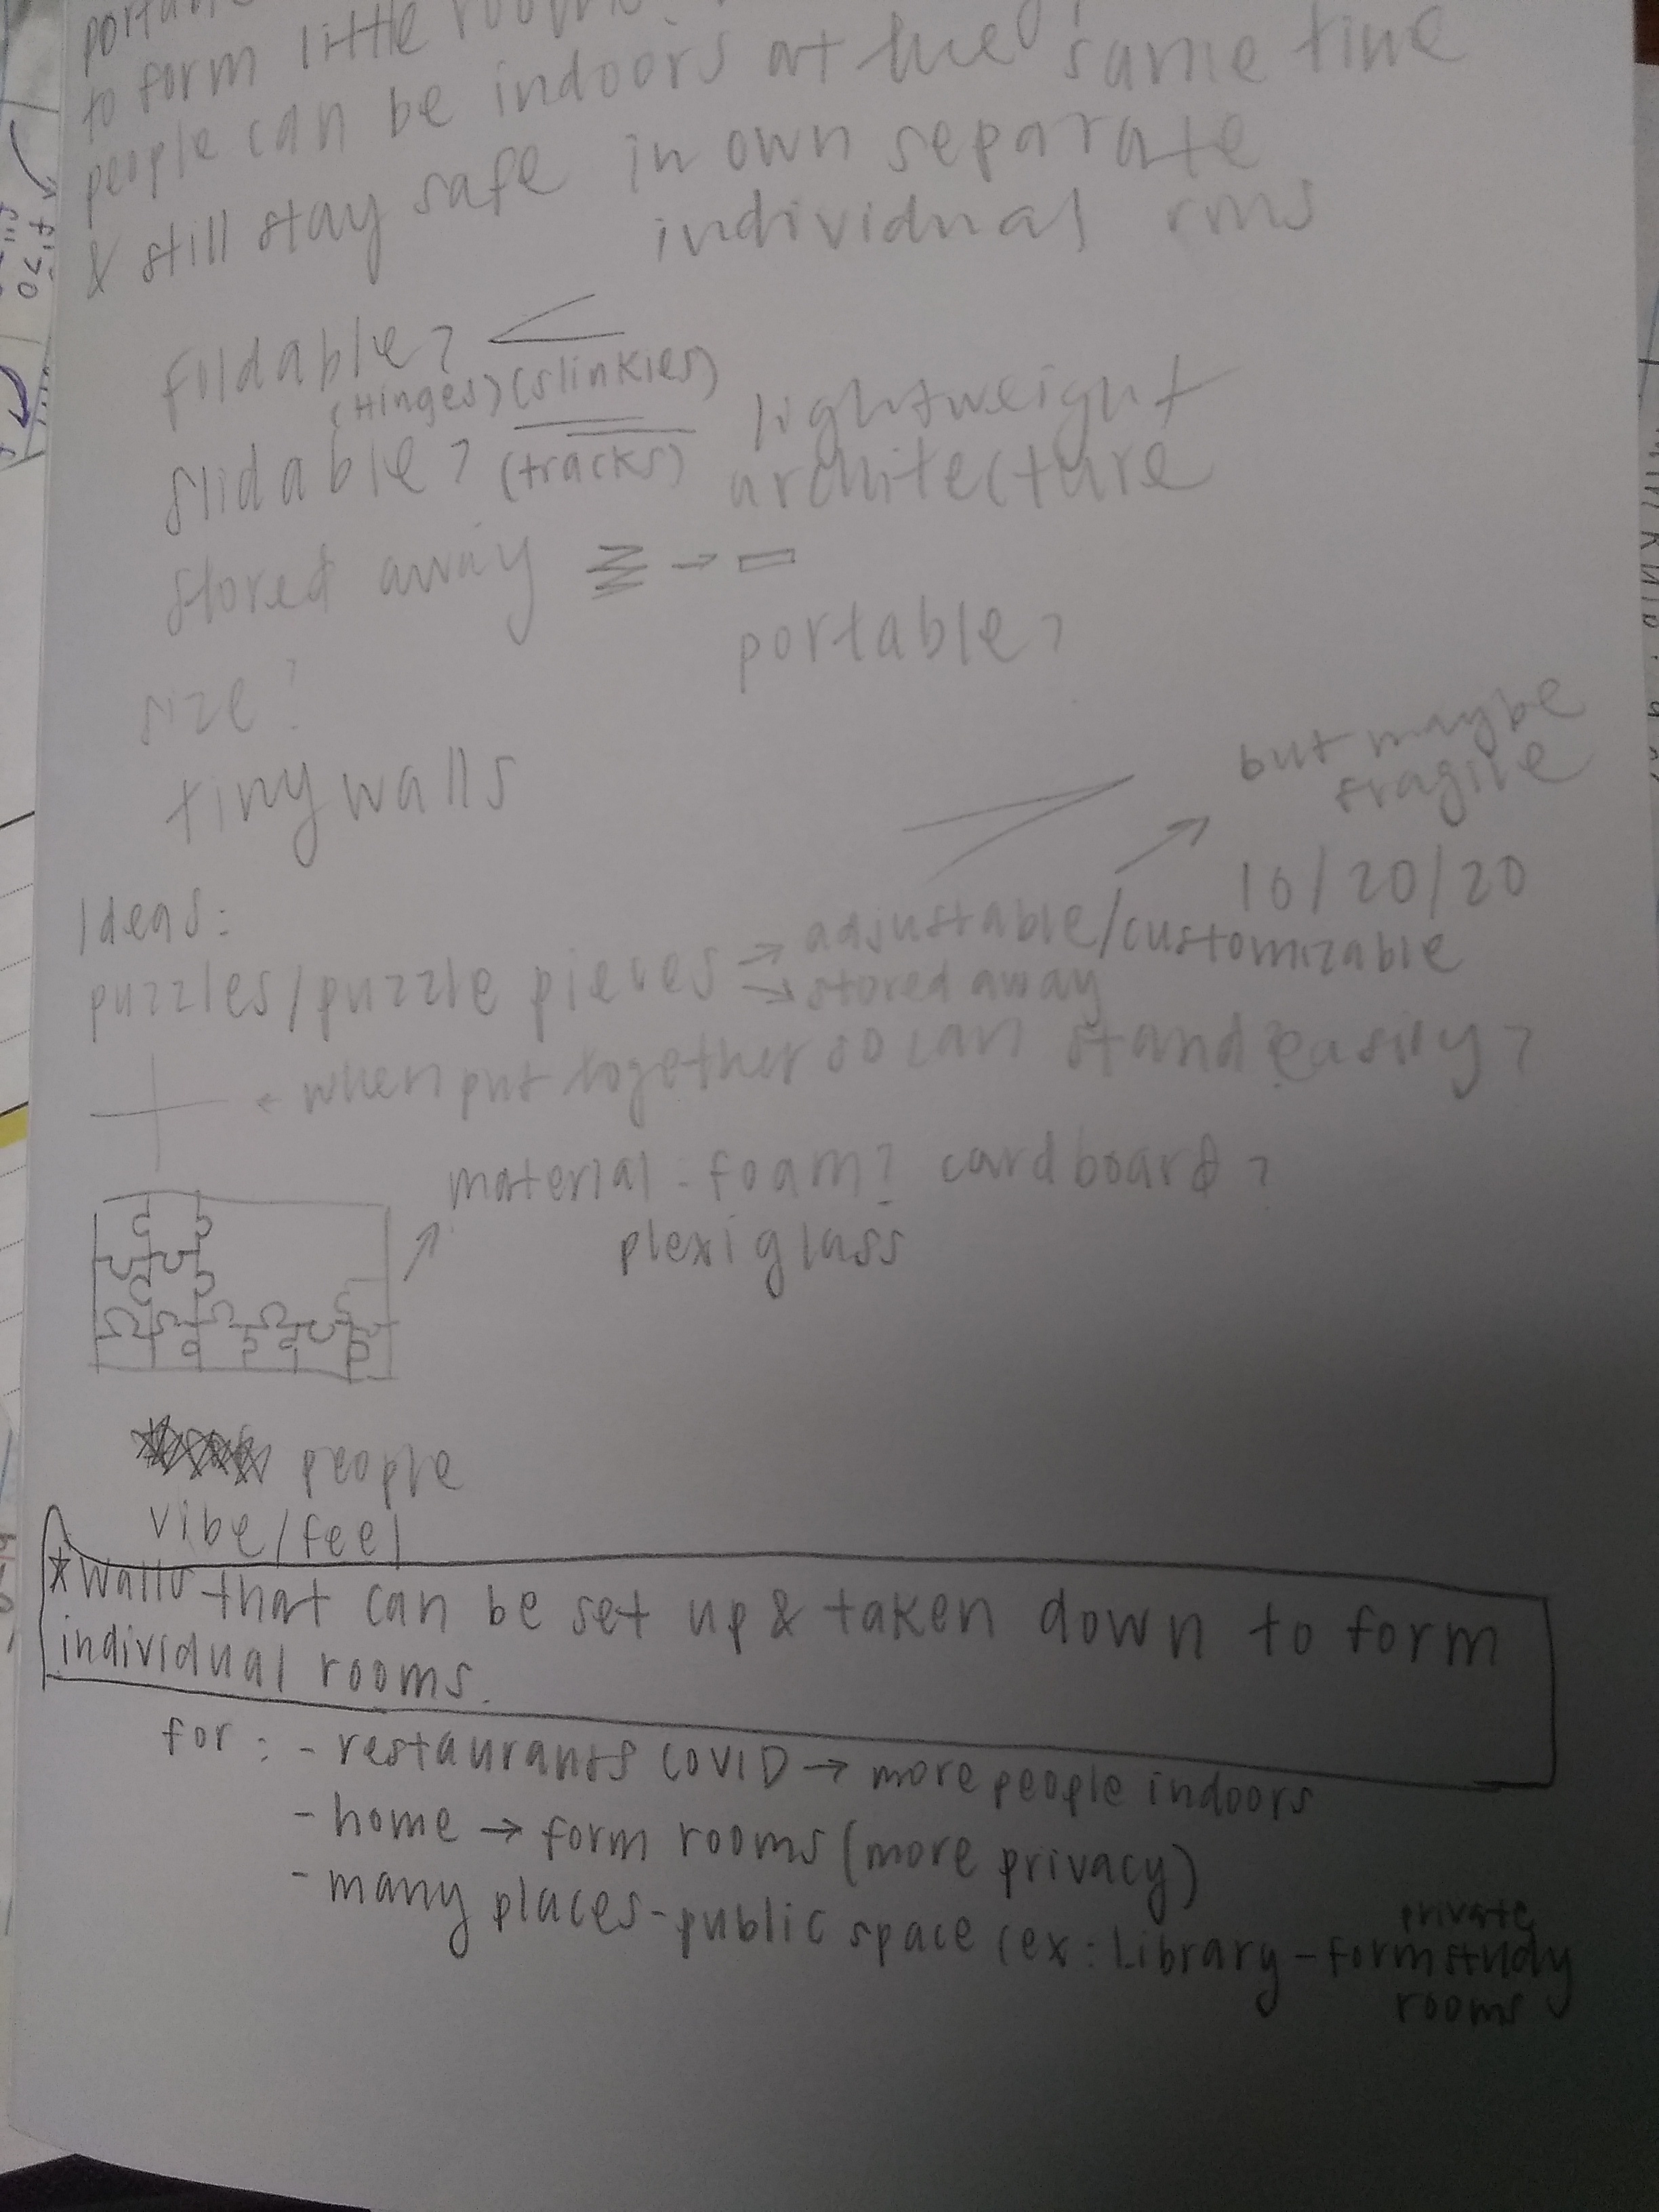 to form little
people can be indoors at the same time
& still stay safe in own separate
individual rms
foldable?
(Hinges) (slinkies)
slidable? (tracks)
lightweight
architecture
stored away
portable?
size?
tiny walls
but maybe
fragile
10/20/20
Ideas:
puzzles/puzzle pieces → adjustable/customizable
→ stored away
← when put together so can stand easily?
material: foam? cardboard?
plexiglass
people
vibe/feel
*walls that can be set up & taken down to form
individual rooms.
for: - restaurants COVID → more people indoors
- home → form rooms (more privacy)
- many places - public space (ex: Library - form private study
rooms